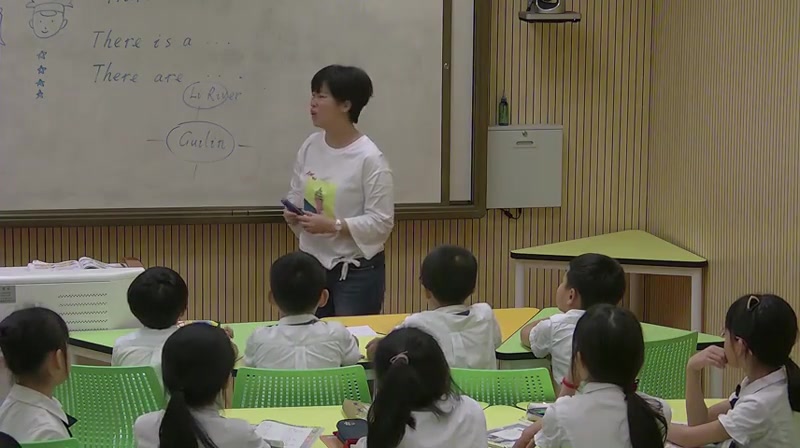 There is a ...
There are ....
Li River
Guilin